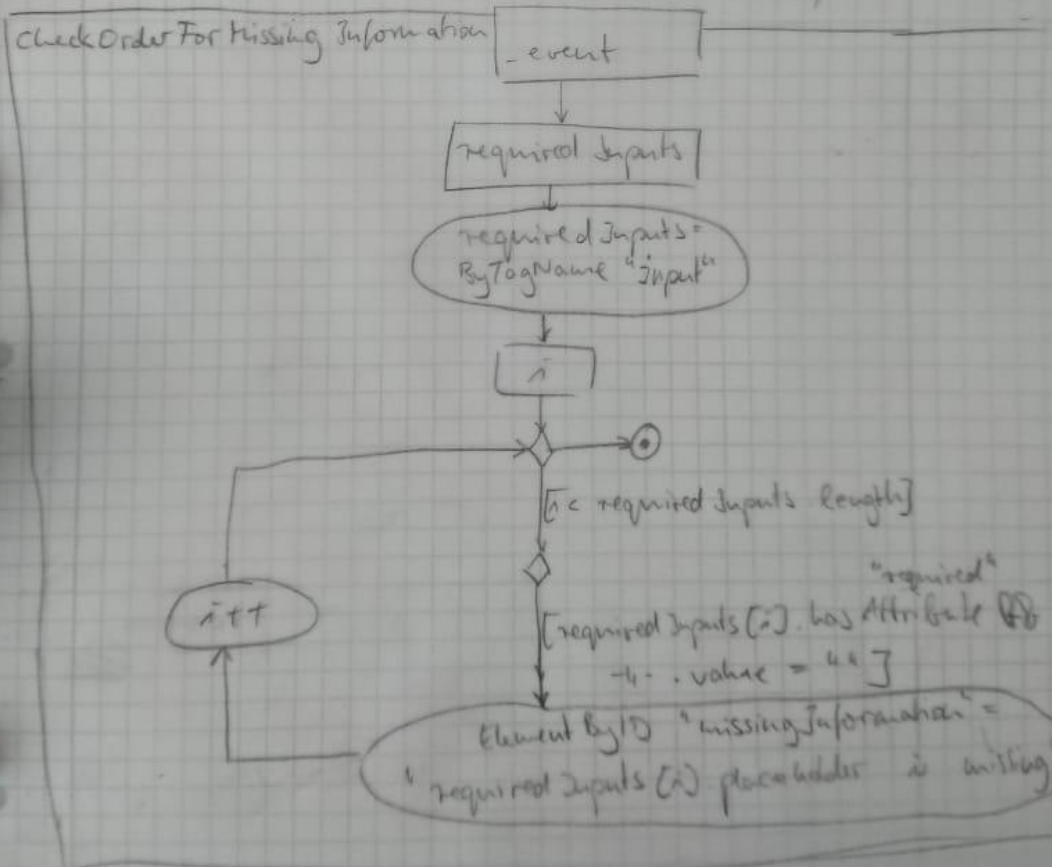 checkOrderForMissing Information
_event
required Inputs
required Inputs =
ByTagName "input"
i
[i < required Inputs length]
i++
"required"
[required Inputs [i]. has Attribute &&
-"- . value = ""]
Element By ID "missing Information" =
" required Inputs [i] placeholder is missing